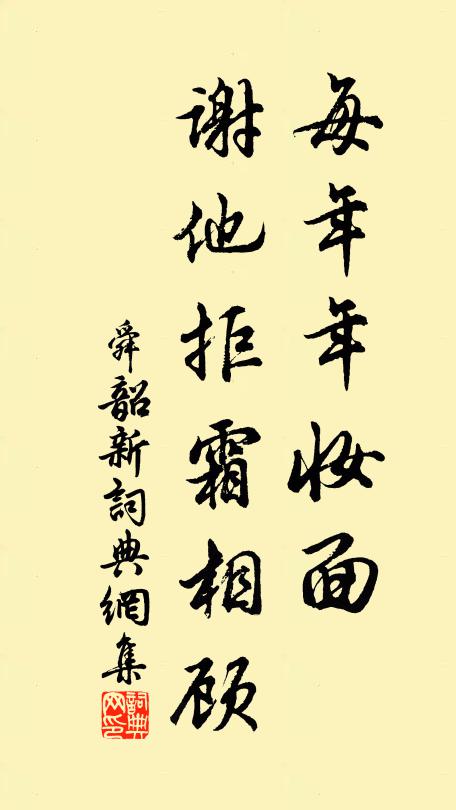 每年年妆面
谢他拒霜相顾
舜韶新詞典網集
詞典網印